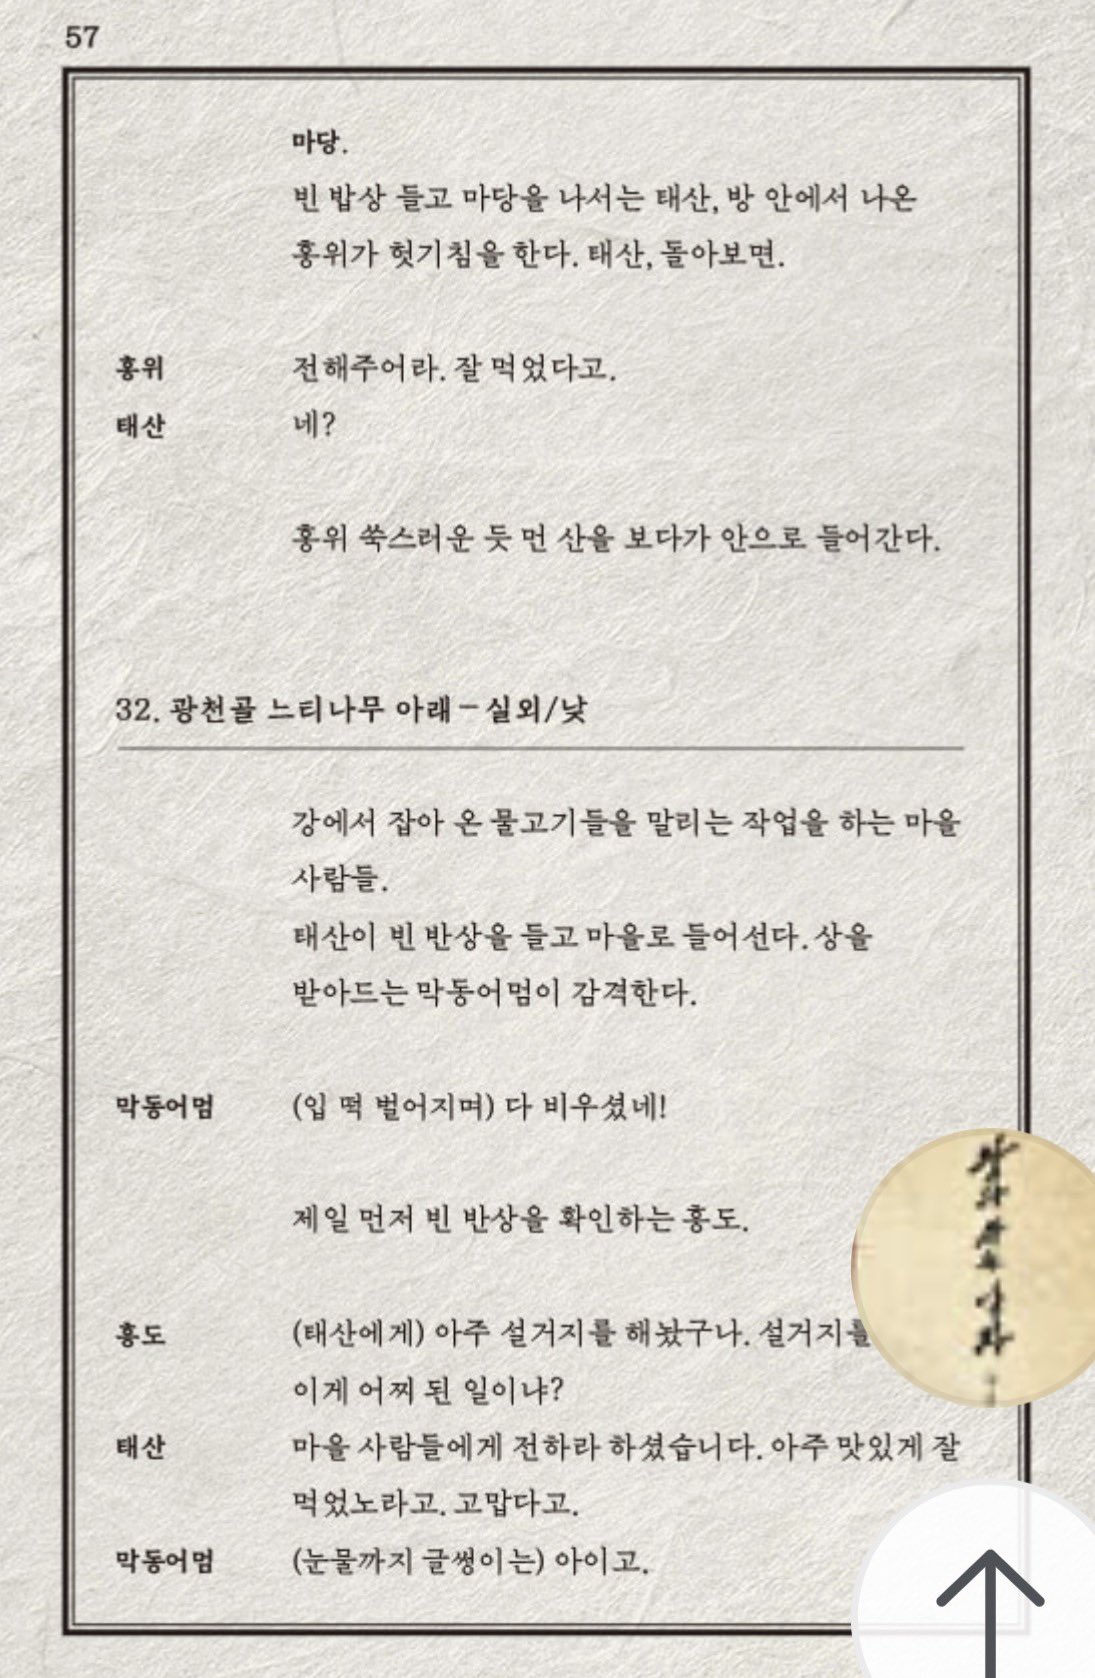 57
마당.
빈 밥상 들고 마당을 나서는 태산, 방 안에서 나온
홍위가 헛기침을 한다. 태산, 돌아보면.
홍위 전해주어라. 잘 먹었다고.
태산 네?
홍위 쑥스러운 듯 먼 산을 보다가 안으로 들어간다.
32. 광천골 느티나무 아래 – 실외/낮
강에서 잡아 온 물고기들을 말리는 작업을 하는 마을
사람들.
태산이 빈 반상을 들고 마을로 들어선다. 상을
받아드는 막동어멈이 감격한다.
막동어멈 (입 떡 벌어지며) 다 비우셨네!
제일 먼저 빈 반상을 확인하는 흥도.
흥도 (태산에게) 아주 설거지를 해놨구나. 설거지를
이게 어찌 된 일이냐?
태산 마을 사람들에게 전하라 하셨습니다. 아주 맛있게 잘
먹었노라고. 고맙다고.
막동어멈 (눈물까지 글썽이는) 아이고.